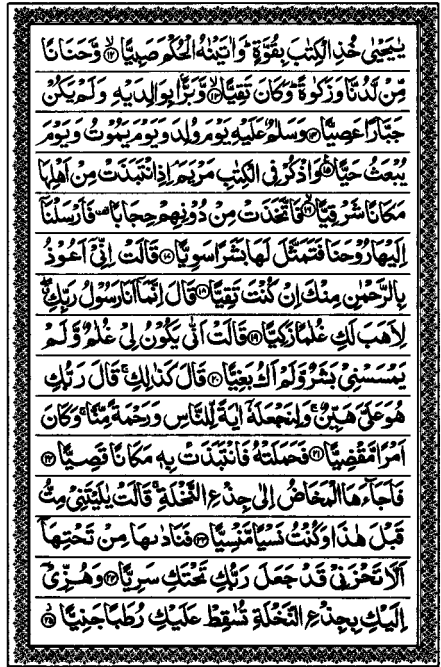 يٰيَحْيٰى خُذِ الْكِتٰبَ بِقُوَّةٍ ؕ وَاٰتَيْنٰهُ الْحُكْمَ صَبِيًّا ۙ۝۱۲ وَّحَنَانًا
مِّنْ لَّدُنَّا وَزَكٰوةً ؕ وَكَانَ تَقِيًّا ۙ۝۱۳ وَّبَرًّۢا بِوَالِدَيْهِ وَلَمْ يَكُنْ
جَبَّارًا عَصِيًّا ۝۱۴ وَسَلٰمٌ عَلَيْهِ يَوْمَ وُلِدَ وَيَوْمَ يَمُوْتُ وَيَوْمَ
يُبْعَثُ حَيًّا ۝۱۵ وَاذْكُرْ فِى الْكِتٰبِ مَرْيَمَ ۘ اِذِ انْتَبَذَتْ مِنْ اَهْلِهَا
مَكَانًا شَرْقِيًّا ۙ۝۱۶ فَاتَّخَذَتْ مِنْ دُوْنِهِمْ حِجَابًا ۫ فَاَرْسَلْنَاۤ
اِلَيْهَا رُوْحَنَا فَتَمَثَّلَ لَهَا بَشَرًا سَوِيًّا ۝۱۷ قَالَتْ اِنِّىْۤ اَعُوْذُ
بِالرَّحْمٰنِ مِنْكَ اِنْ كُنْتَ تَقِيًّا ۝۱۸ قَالَ اِنَّمَاۤ اَنَا رَسُوْلُ رَبِّكِ ۖ
لِاَهَبَ لَكِ غُلٰمًا زَكِيًّا ۝۱۹ قَالَتْ اَنّٰى يَكُوْنُ لِىْ غُلٰمٌ وَّلَمْ
يَمْسَسْنِىْ بَشَرٌ وَّلَمْ اَكُ بَغِيًّا ۝۲۰ قَالَ كَذٰلِكِ ۚ قَالَ رَبُّكِ
هُوَ عَلَىَّ هَيِّنٌ ۚ وَلِنَجْعَلَهٗۤ اٰيَةً لِّلنَّاسِ وَرَحْمَةً مِّنَّا ۚ وَكَانَ
اَمْرًا مَّقْضِيًّا ۝۲۱ فَحَمَلَتْهُ فَانْتَبَذَتْ بِهٖ مَكَانًا قَصِيًّا ۝۲۲
فَاَجَآءَهَا الْمَخَاضُ اِلٰى جِذْعِ النَّخْلَةِ ۚ قَالَتْ يٰلَيْتَنِىْ مِتُّ
قَبْلَ هٰذَا وَكُنْتُ نَسْيًا مَّنْسِيًّا ۝۲۳ فَنَادٰىهَا مِنْ تَحْتِهَاۤ
اَلَّا تَحْزَنِىْ قَدْ جَعَلَ رَبُّكِ تَحْتَكِ سَرِيًّا ۝۲۴ وَهُزِّىْۤ
اِلَيْكِ بِجِذْعِ النَّخْلَةِ تُسٰقِطْ عَلَيْكِ رُطَبًا جَنِيًّا ۝۲۵